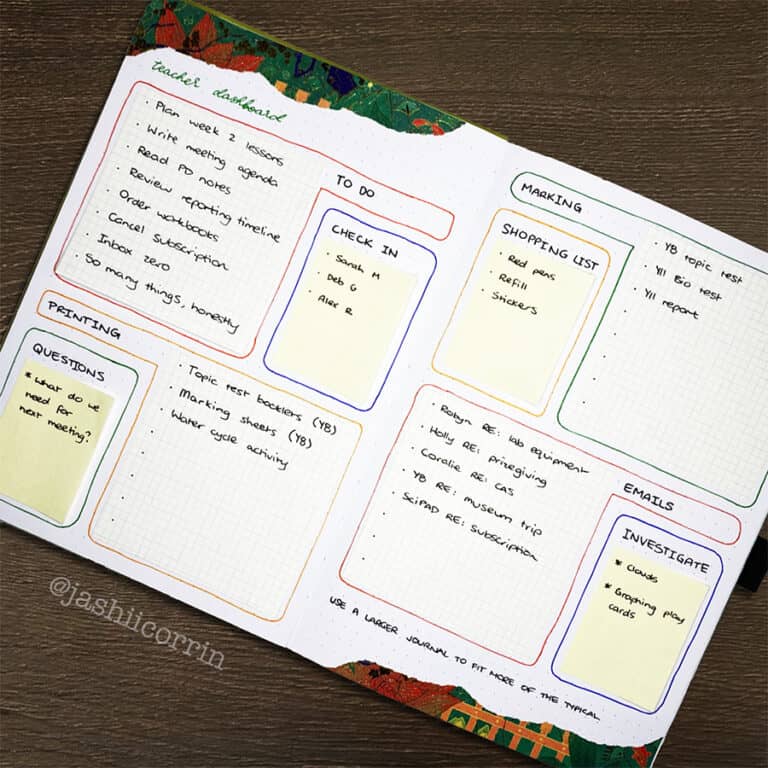 teacher dashboard
TO DO
• Plan week 2 lessons
• Write meeting agenda
• Read PD notes
• Review reporting timeline
• Order workbooks
• Cancel Subscription
• Inbox zero
• So many things, honestly
CHECK IN
• Sarah M
• Deb G
• Alex R
PRINTING
• Topic test booklets (Y8)
• Marking sheets (Y8)
• Water cycle activity
QUESTIONS
* What do we
need for
next meeting?
MARKING
• Y8 topic test
• Y11 Bio test
• Y11 report
SHOPPING LIST
• Red pens
• Refill
• Stickers
EMAILS
• Robyn RE: lab equipment
• Holly RE: prizegiving
• Coralie RE: CAS
• Y8 RE: museum trip
• SciPAD RE: Subscription
INVESTIGATE
* Clouds
* Graphing play
cards
USE A LARGER JOURNAL TO FIT MORE OF THE TYPICAL
@jashiicorrin